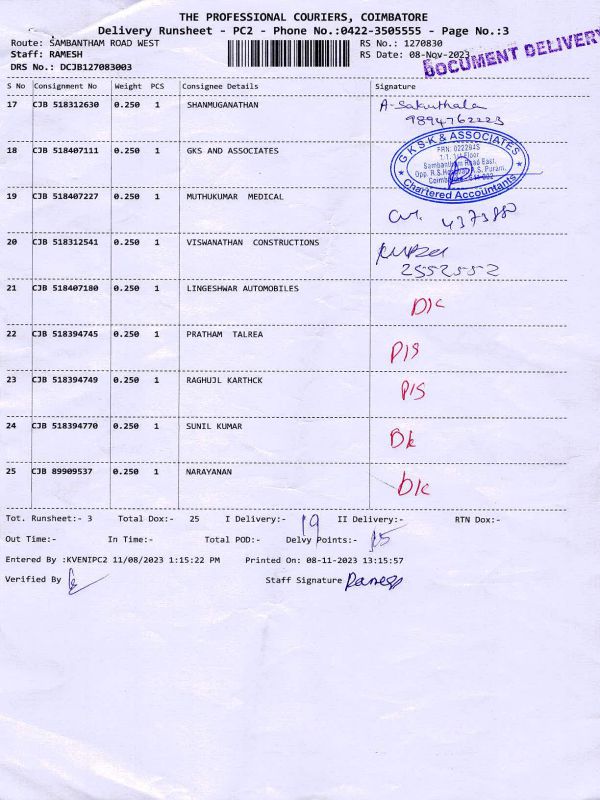 THE PROFESSIONAL COURIERS, COIMBATORE
Delivery Runsheet - PC2 - Phone No.:0422-3505555 - Page No.:3
Route: SAMBANTHAM ROAD WEST RS No.: 1270830
Staff: RAMESH RS Date: 08-Nov-2023
DOCUMENT DELIVERY
DRS No.: DCJB127083003
S No Consignment No Weight PCS Consignee Details Signature
17 CJB 518312630 0.250 1 SHANMUGANATHAN A-Sakunthala
9894762223
18 CJB 518407111 0.250 1 GKS AND ASSOCIATES
GKSK & ASSOCIATES
FRN: 022264S
1-1, 1st Floor
Sambantham Road East,
R.S. Puram,
Chartered Accountants
19 CJB 518407227 0.250 1 MUTHUKUMAR MEDICAL
4373880
20 CJB 518312541 0.250 1 VISWANATHAN CONSTRUCTIONS
2552552
21 CJB 518407180 0.250 1 LINGESHWAR AUTOMOBILES D/c
22 CJB 518394745 0.250 1 PRATHAM TALREA P/S
23 CJB 518394749 0.250 1 RAGHUJL KARTHCK P/S
24 CJB 518394770 0.250 1 SUNIL KUMAR
25 CJB 89909537 0.250 1 NARAYANAN D/c
Tot. Runsheet:- 3 Total Dox:- 25 I Delivery:- 19 II Delivery:- RTN Dox:-
Out Time:- In Time:- Total POD:- Delvy Points:- 15
Entered By :KVENIPC2 11/08/2023 1:15:22 PM Printed On: 08-11-2023 13:15:57
Verified By Staff Signature Ramesh